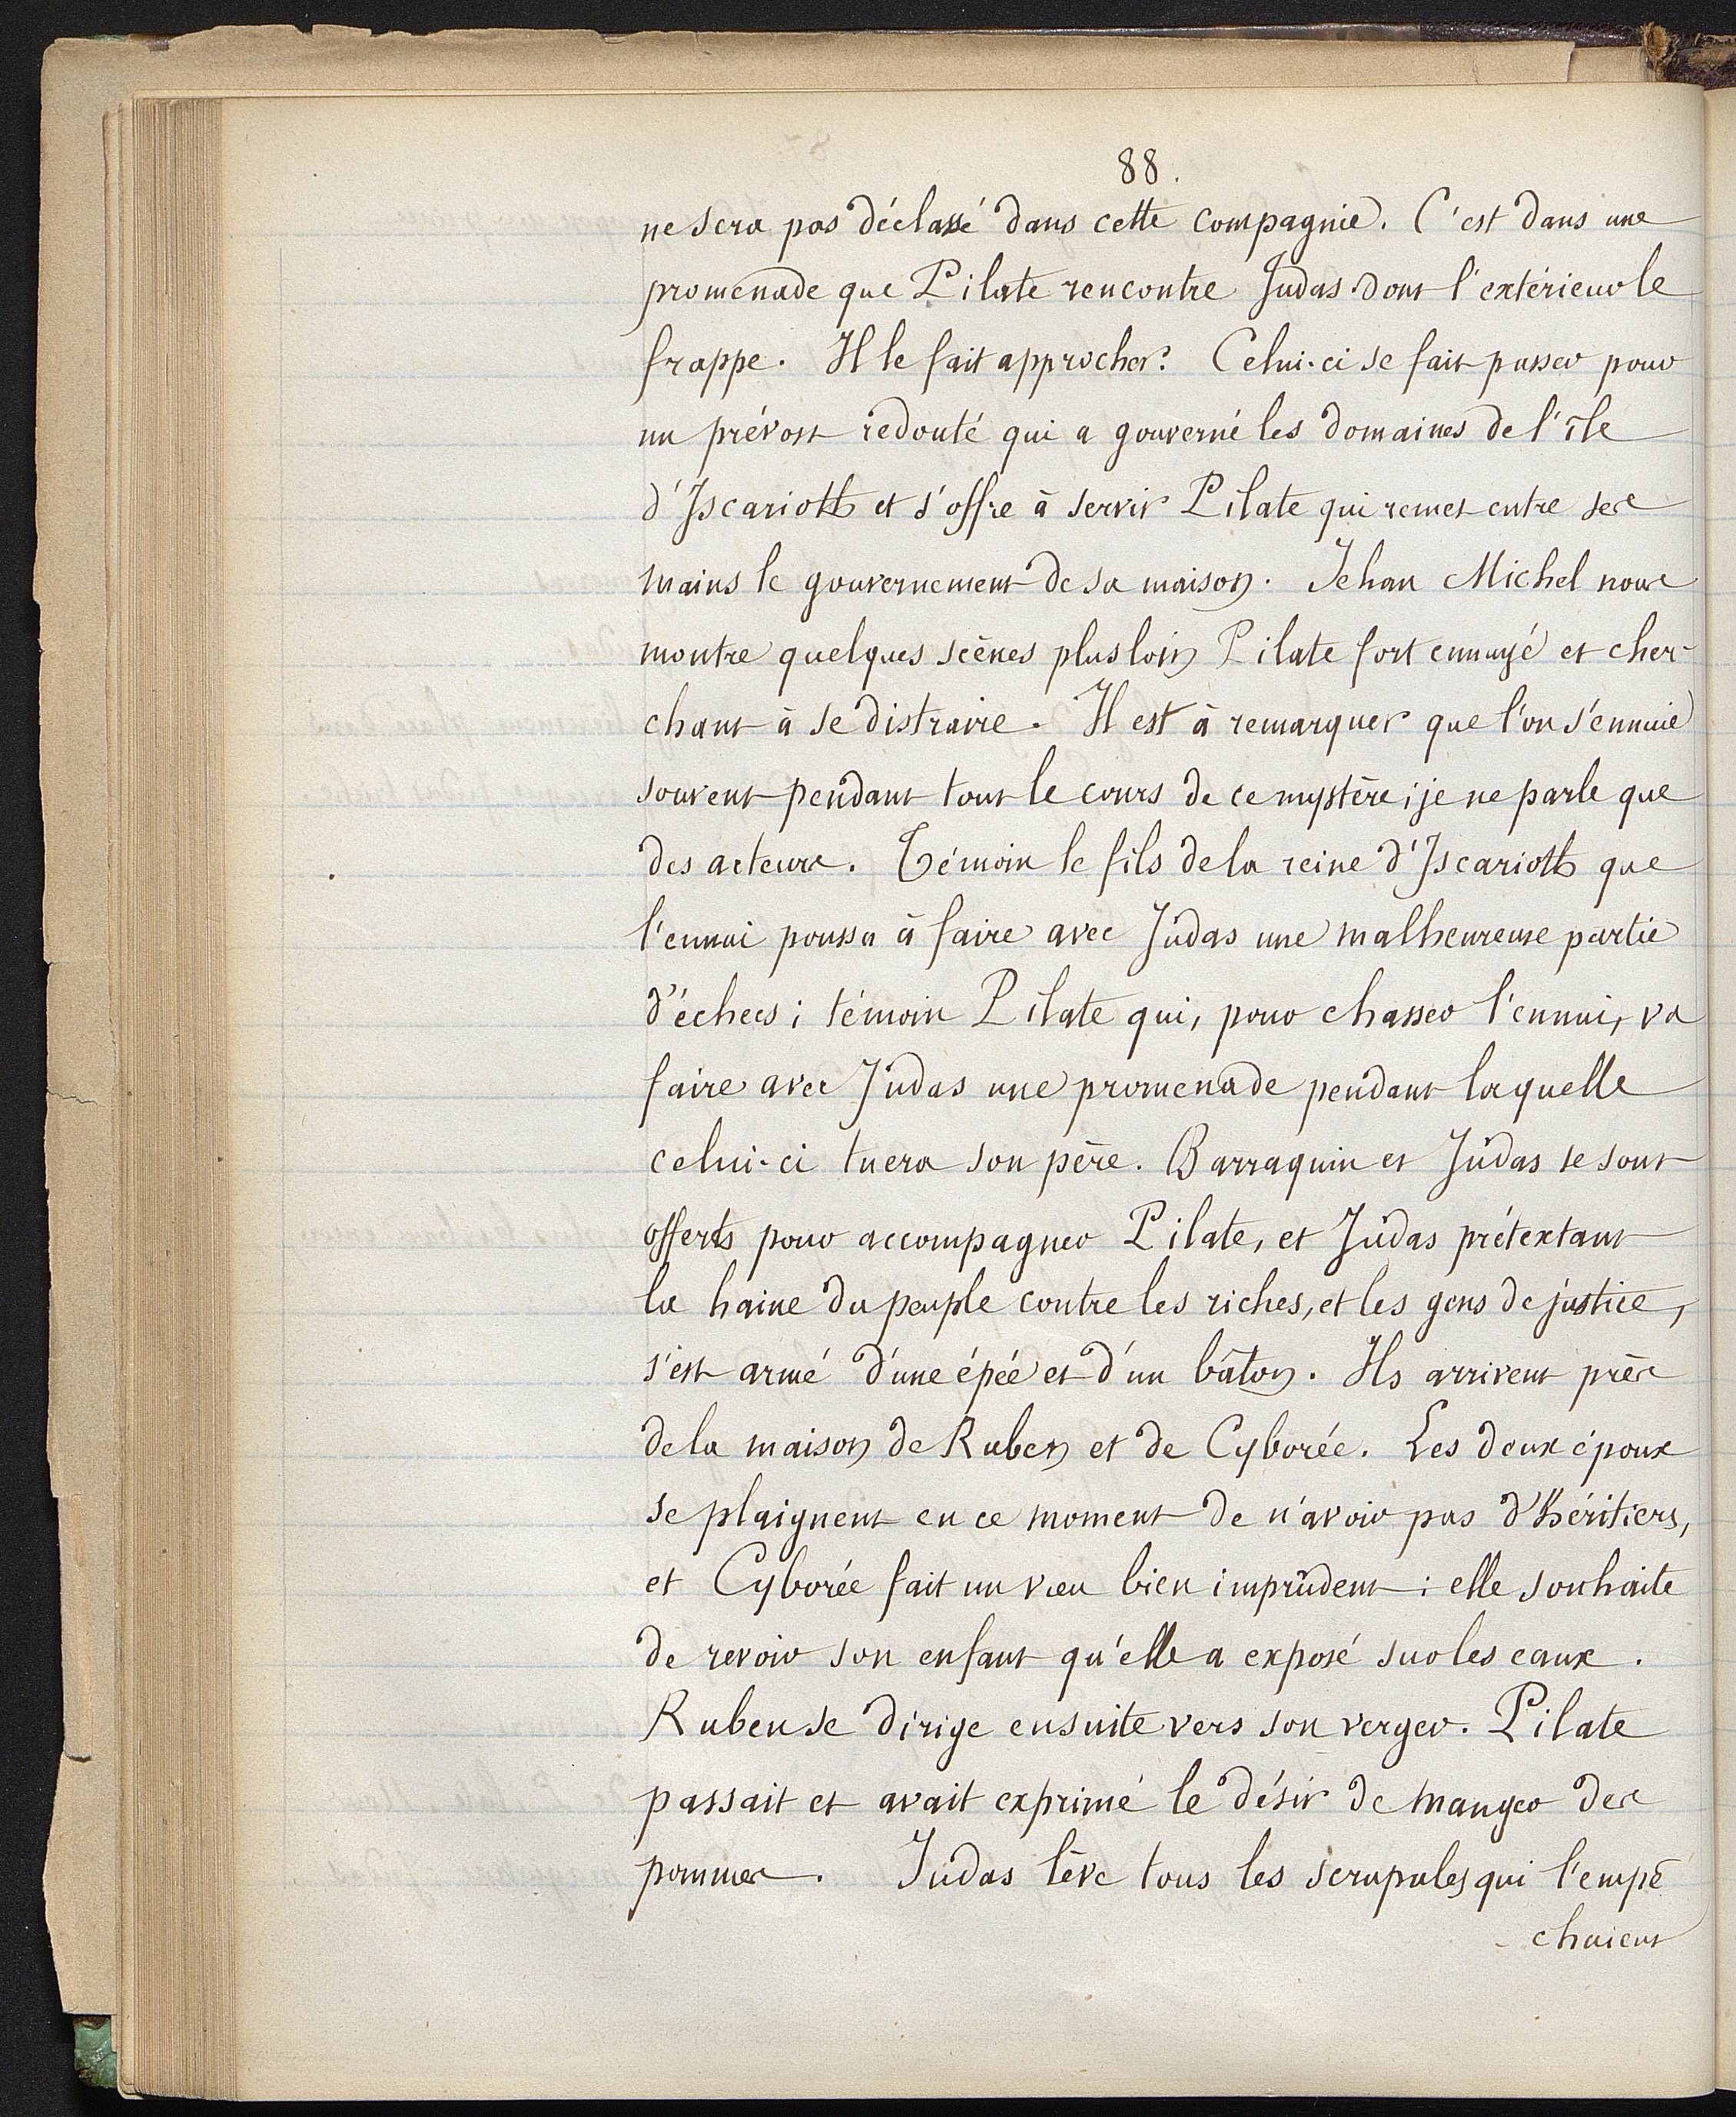 88.
ne sera pas déclassé dans cette compagnie. C'est dans une
promenade que Pilate rencontre Judas dont l'extérieur le
frappe. Il le fait approcher. Celui-ci se fait passer pour
un prévost redouté qui a gouverné les domaines de l'île
d'Iscarioth et s'offre à servir Pilate qui remet entre ses
mains le gouvernement de sa maison. Jehan Michel nous
montre quelques scènes plus loin Pilate fort ennuyé et cher-
chant à se distraire. Il est à remarquer que l'on s'ennuie
souvent pendant tout le cours de ce mystère ; je ne parle que
des acteurs. Témoin le fils de la reine d'Iscarioth que
l'ennui poussa à faire avec Judas une malheureuse partie
d'échecs ; témoin Pilate qui, pour chasser l'ennui, va
faire avec Judas une promenade pendant laquelle
celui-ci tuera son père. Barraquin et Judas se sont
offerts pour accompagner Pilate, et Judas prétextant
la haine du peuple contre les riches, et les gens de justice,
s'est armé d'une épée et d'un bâton. Ils arrivent près
de la maison de Ruben et de Cyborée. Les deux époux
se plaignent en ce moment de n'avoir pas d'héritiers,
et Cyborée fait un vœu bien imprudent : elle souhaite
de revoir son enfant qu'elle a exposé sur les eaux.
Ruben se dirige ensuite vers son verger. Pilate
passait et avait exprimé le désir de manger des
pommes. Judas lève tous les scrupules qui l'empê
-chaient